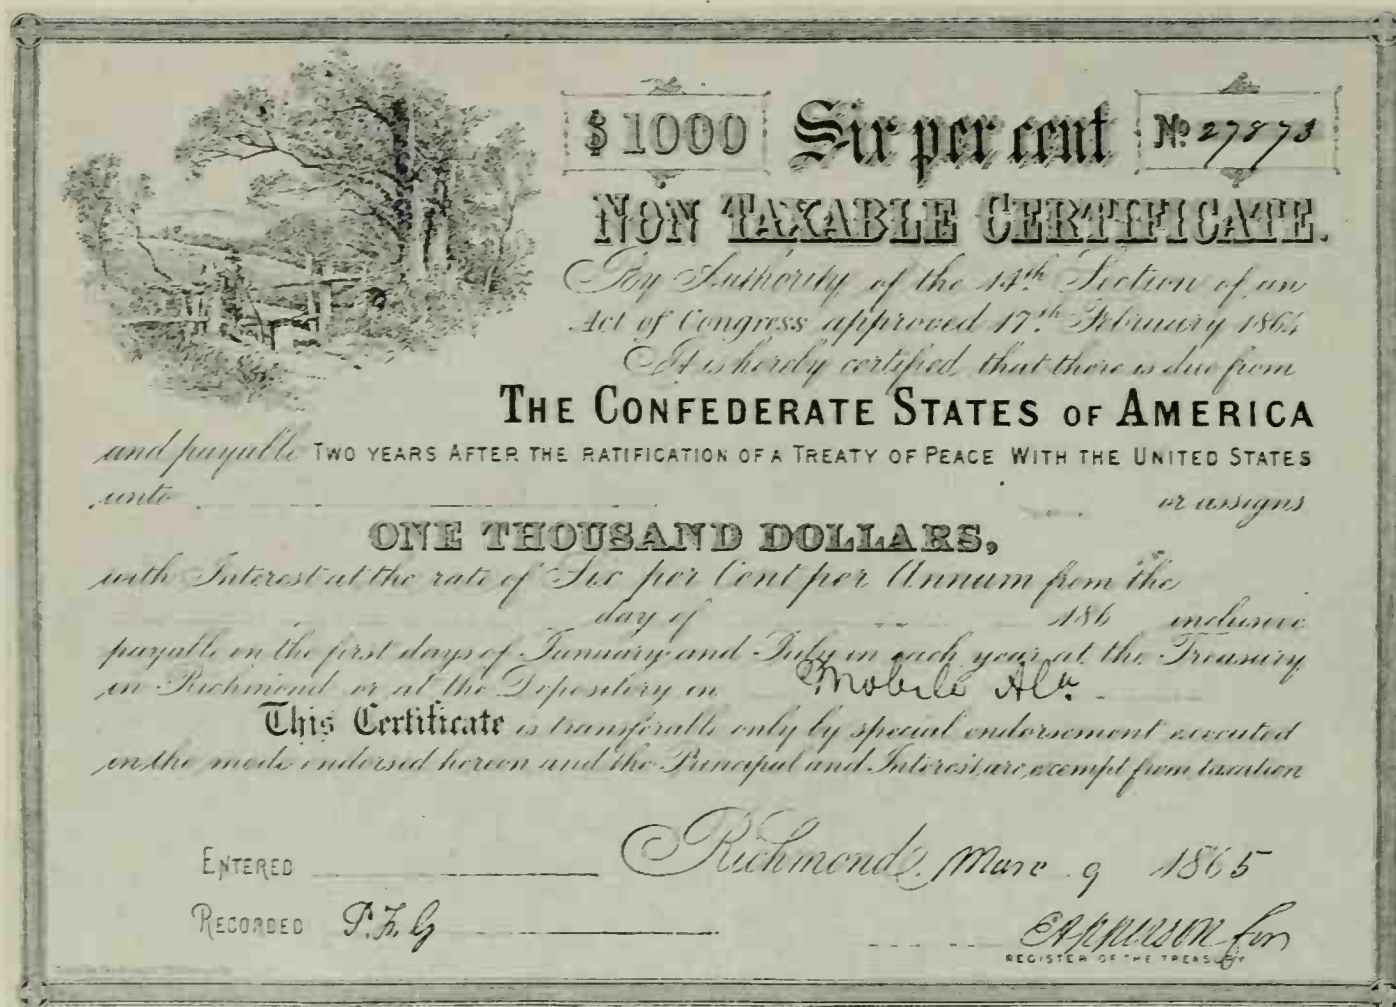 $ 1000 Six per cent No. 27873
NON TAXABLE CERTIFICATE.
By Authority of the 14th Section of an
Act of Congress approved 17th February 1864
It is hereby certified that there is due from
THE CONFEDERATE STATES OF AMERICA
and payable TWO YEARS AFTER THE RATIFICATION OF A TREATY OF PEACE WITH THE UNITED STATES
unto or assigns
ONE THOUSAND DOLLARS,
with Interest at the rate of Six per Cent per Annum from the
day of 186 inclusive
payable on the first days of January and July in each year at the Treasury
in Richmond or at the Depository in Mobile Ala.
This Certificate is transferable only by special endorsement executed
in the mode endorsed hereon and the Principal and Interest are exempt from taxation
Richmond, Marc 9 1865
ENTERED
RECORDED
for
REGISTER OF THE TREASURY